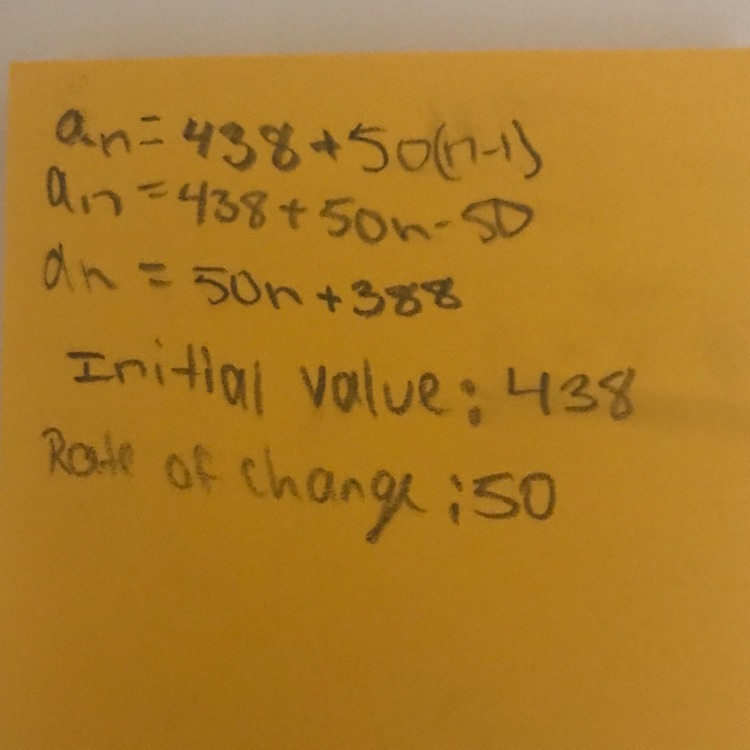 an = 438 + 50(n-1)
an = 438 + 50n - 50
an = 50n + 388
Initial value: 438
Rate of change: 50